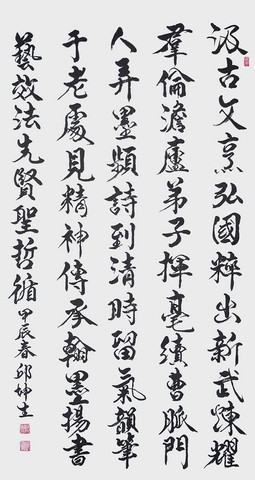 汲古文烹弘國粹出新武煉耀
羣倫澹廬弟子揮毫續曹脈門
人弄墨頻詩到清時留氣韻筆
于老處見精神傳承翰墨揚書
藝效法先賢聖哲循甲辰春邱坤生